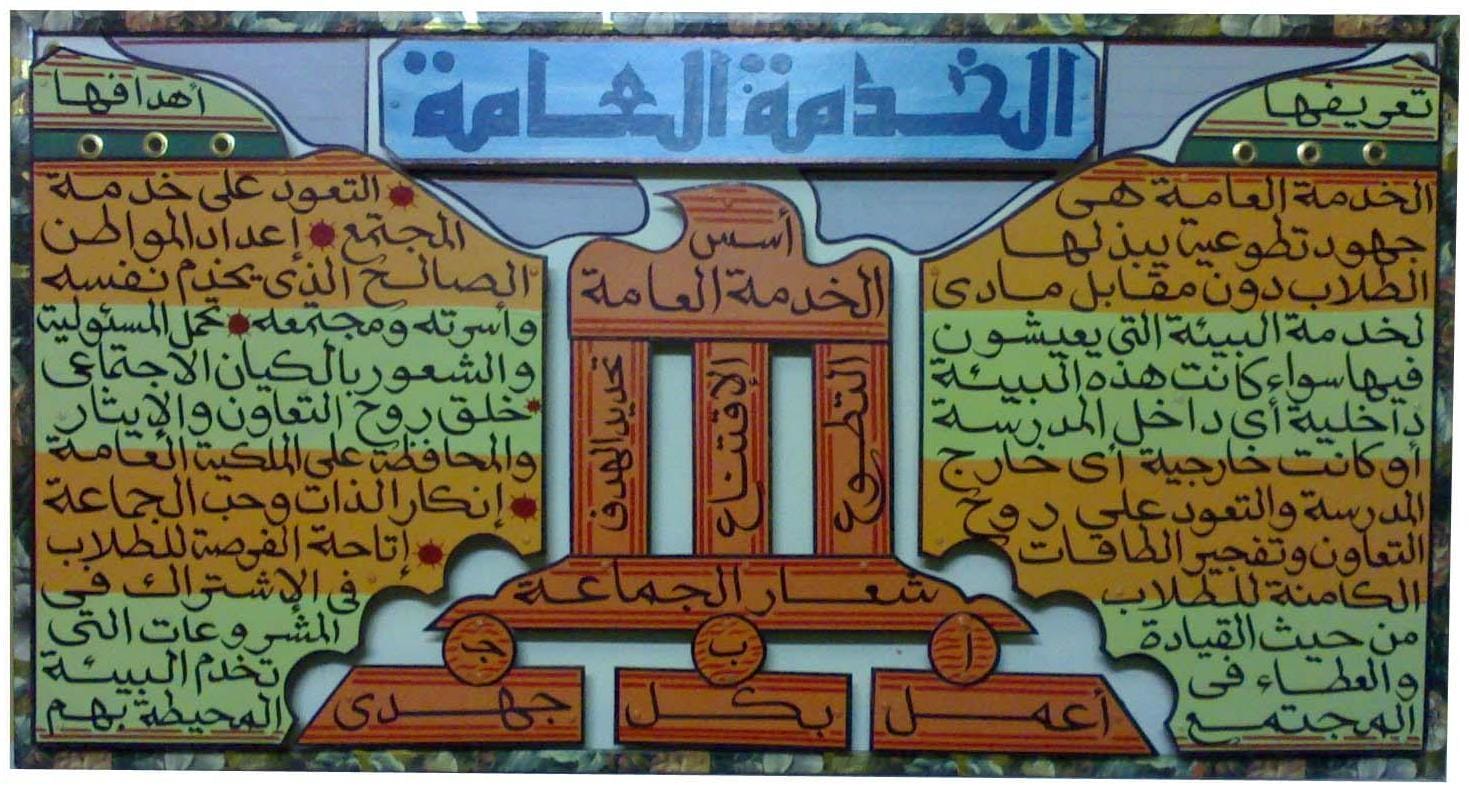 الخدمة العامة
تعريفها
الخدمة العامة هى
جهود تطوعية يبذلها
الطلاب دون مقابل مادى
لخدمة البيئة التي يعيشون
فيها سواء كانت هذه البيئة
داخلية أى داخل المدرسة
أو كانت خارجية أى خارج
المدرسة والتعود على روح
التعاون وتفجير الطاقات
الكامنة للطلاب
من حيث القيادة
والعطاء فى
المجتمع
أسس
الخدمة العامة
التطوع
الإقتناع
تحديد الهدف
شعار الجماعة
أ
ب
ج
أعمل
بكل
جهدى
أهدافها
التعود على خدمة
المجتمع إعداد المواطن
الصالح الذى يخدم نفسه
وأسرته ومجتمعه تحمل المسئولية
والشعور بالكيان الاجتماعى
خلق روح التعاون والإيثار
والمحافظة على الملكية العامة
إنكار الذات وحب الجماعة
إتاحة الفرصة للطلاب
فى الإشتراك فى
المشروعات التى
تخدم البيئة
المحيطة بهم